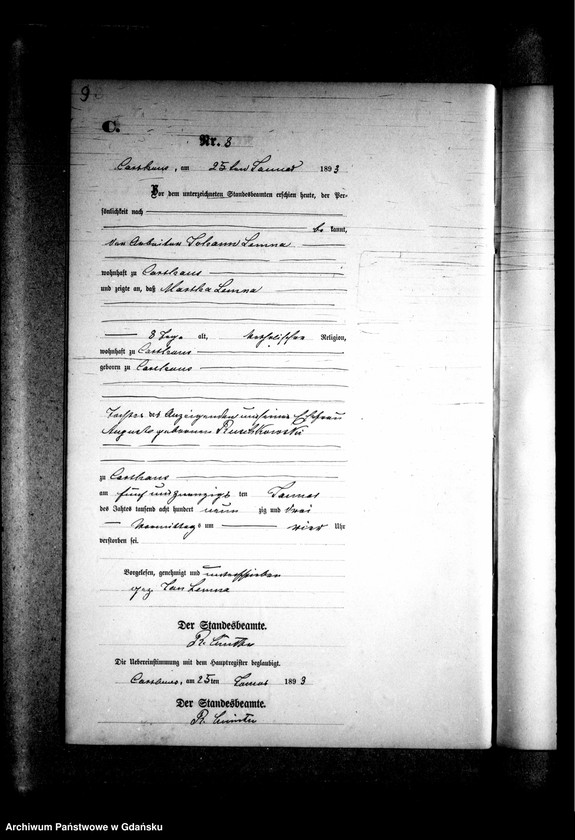 9
C.
Nr. 8
Carthaus, am 25ten Januar 1893
Vor dem unterzeichneten Standesbeamten erschien heute, der Per-
sönlichkeit nach
be kannt,
der Arbeiter Johann Lemna
wohnhaft zu Carthaus
und zeigte an, daß Martha Lemna
8 Tage alt, katholischer Religion,
wohnhaft zu Carthaus
geboren zu Carthaus
Tochter des Anzeigenden und seiner Ehefrau
Auguste geborenen
zu Carthaus
am fünf und zwanzigs ten Januar
des Jahres tausend acht hundert neun zig und drei
Vormittags um vier Uhr
verstorben sei.
Vorgelesen, genehmigt und unterschrieben
gez. Jan Lemna
Der Standesbeamte.
Die Uebereinstimmung mit dem Hauptregister beglaubigt.
Carthaus, am 25ten Januar 1893
Der Standesbeamte.
Archiwum Państwowe w Gdańsku